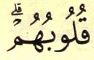 قُلُوبُهُمْۗ